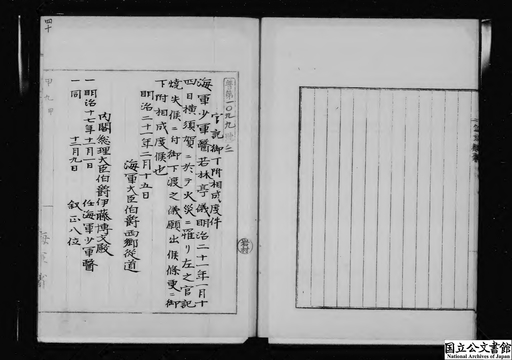 官記御下附相成度件
海軍少軍醫若林亭儀明治二十一年一月十
四日横須賀ニ於テ火災ニ罹リ左之官記
燒失候ニ付御下渡之儀願出候條更ニ御
下附相成度候也
明治二十一年二月十五日
海軍大臣伯爵西郷從道
内閣総理大臣伯爵伊藤博文殿
一明治十七年十一月一日 任海軍少軍醫
一同 十二月九日 叙正八位
国立公文書館
National Archives of Japan